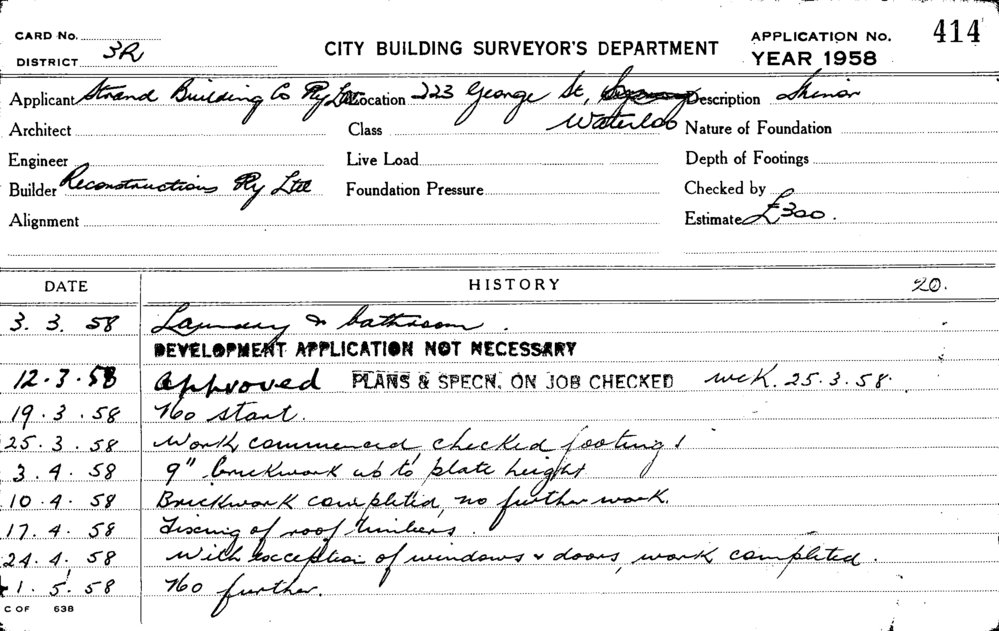 CARD No.
DISTRICT 3R
CITY BUILDING SURVEYOR'S DEPARTMENT
APPLICATION No. 414
YEAR 1958
Applicant Strand Building Co Pty Ltd Location 223 George St, Waterloo Description Minor
Architect Class Nature of Foundation
Engineer Live Load Depth of Footings
Builder Reconstructions Pty Ltd Foundation Pressure Checked by
Alignment Estimate £300.
DATE HISTORY 20.
3. 3. 58 Laundry & bathroom.
DEVELOPMENT APPLICATION NOT NECESSARY
12.3.58 Approved PLANS & SPECN. ON JOB CHECKED WCK. 25.3.58.
19.3.58 No start.
25.3.58 Work commenced checked footings
3.4.58 9" brickwork up to plate height
10.4.58 Brickwork completed, no further work.
17.4.58 Fixing of roof timbers.
24.4.58 With exception of windows & doors, work completed.
1.5.58 No further.
C OF 638